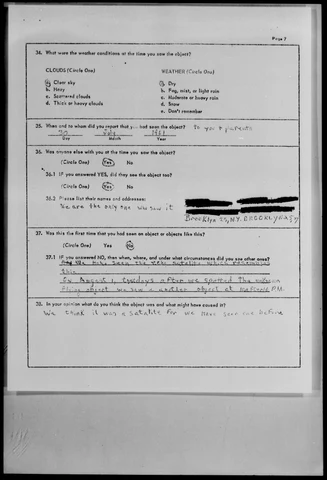 Page 7
34. What were the weather conditions at the time you saw the object?
CLOUDS (Circle One) WEATHER (Circle One)
a. Clear sky a. Dry
b. Hazy b. Fog, mist, or light rain
c. Scattered clouds c. Moderate or heavy rain
d. Thick or heavy clouds d. Snow
e. Don't remember
35. When and to whom did you report that you had seen the object? To your parents
30 July 1961
Day Month Year
36. Was anyone else with you at the time you saw the object?
(Circle One) Yes No
36.1 IF you answered YES, did they see the object too?
(Circle One) Yes No
36.2 Please list their names and addresses:
We are the only one who saw it
Brooklyn 23, N.Y.
37. Was this the first time that you had seen an object or objects like this?
(Circle One) Yes No
37.1 IF you answered NO, then when, where, and under what circumstances did you see other ones?
seen the satalite which resembles
this
On August 1, 2 days after we spotted the
flying object we saw a another object at P.M.
38. In your opinion what do you think the object was and what might have caused it?
We think it was a satalite for we have seen one before